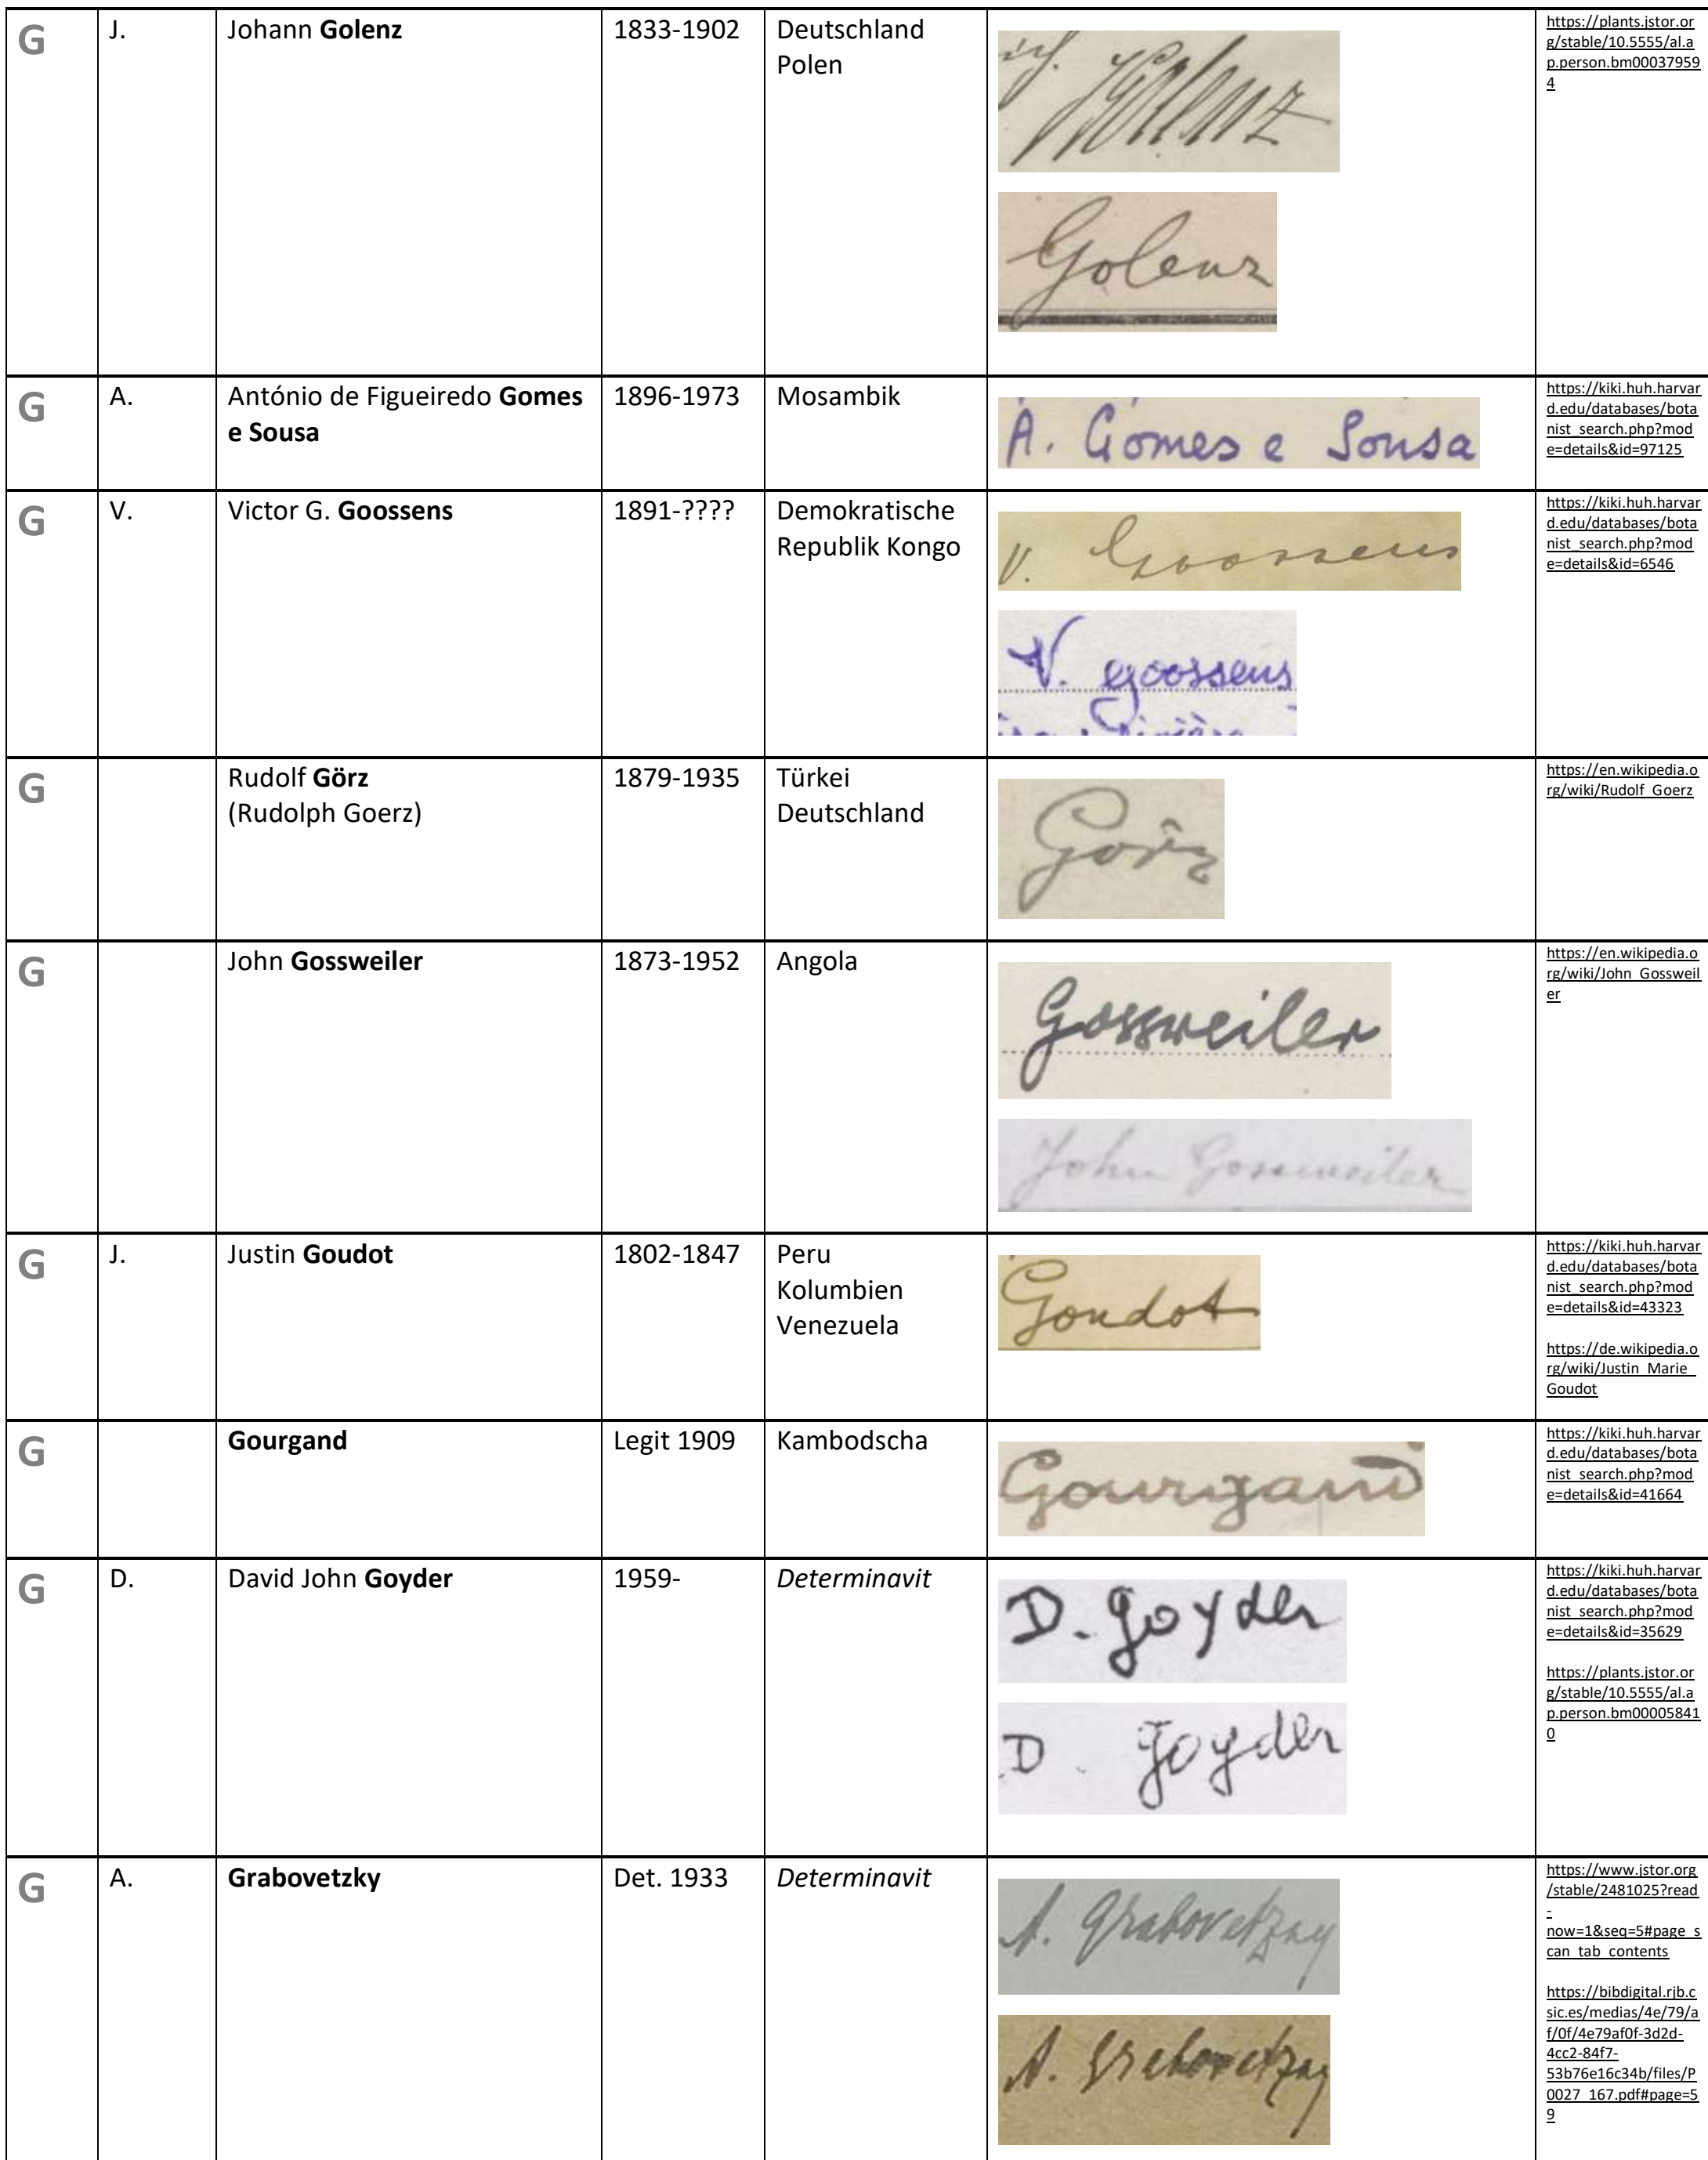 G J. Johann Golenz 1833-1902 Deutschland
Polen
ich. Golenz
Golenz
https://plants.jstor.or
g/stable/10.5555/al.a
p.person.bm00037959
4
G A. António de Figueiredo Gomes
e Sousa
1896-1973 Mosambik
A. Gomes e Sousa
https://kiki.huh.harvar
d.edu/databases/bota
nist_search.php?mod
e=details&id=97125
G V. Victor G. Goossens 1891-???? Demokratische
Republik Kongo
V. Goossens
V. Goossens
https://kiki.huh.harvar
d.edu/databases/bota
nist_search.php?mod
e=details&id=6546
G Rudolf Görz
(Rudolph Goerz)
1879-1935 Türkei
Deutschland
Görz
https://en.wikipedia.o
rg/wiki/Rudolf_Goerz
G John Gossweiler 1873-1952 Angola
Gossweiler
John Gossweiler
https://en.wikipedia.o
rg/wiki/John_Gossweil
er
G J. Justin Goudot 1802-1847 Peru
Kolumbien
Venezuela
Goudot
https://kiki.huh.harvar
d.edu/databases/bota
nist_search.php?mod
e=details&id=43323
https://de.wikipedia.o
rg/wiki/Justin_Marie_
Goudot
G Gourgand Legit 1909 Kambodscha
Gourgand
https://kiki.huh.harvar
d.edu/databases/bota
nist_search.php?mod
e=details&id=41664
G D. David John Goyder 1959- Determinavit
D. Goyder
D. Goyder
https://kiki.huh.harvar
d.edu/databases/bota
nist_search.php?mod
e=details&id=35629
https://plants.jstor.or
g/stable/10.5555/al.a
p.person.bm00005841
0
G A. Grabovetzky Det. 1933 Determinavit
A. Grabovetzky
A. Grabovetzky
https://www.jstor.org
/stable/2481025?read
-
now=1&seq=5#page_s
can_tab_contents
https://bibdigital.rjb.c
sic.es/medias/4e/79/a
f/0f/4e79af0f-3d2d-
4cc2-84f7-
53b76e16c34b/files/P
0027_167.pdf#page=5
9